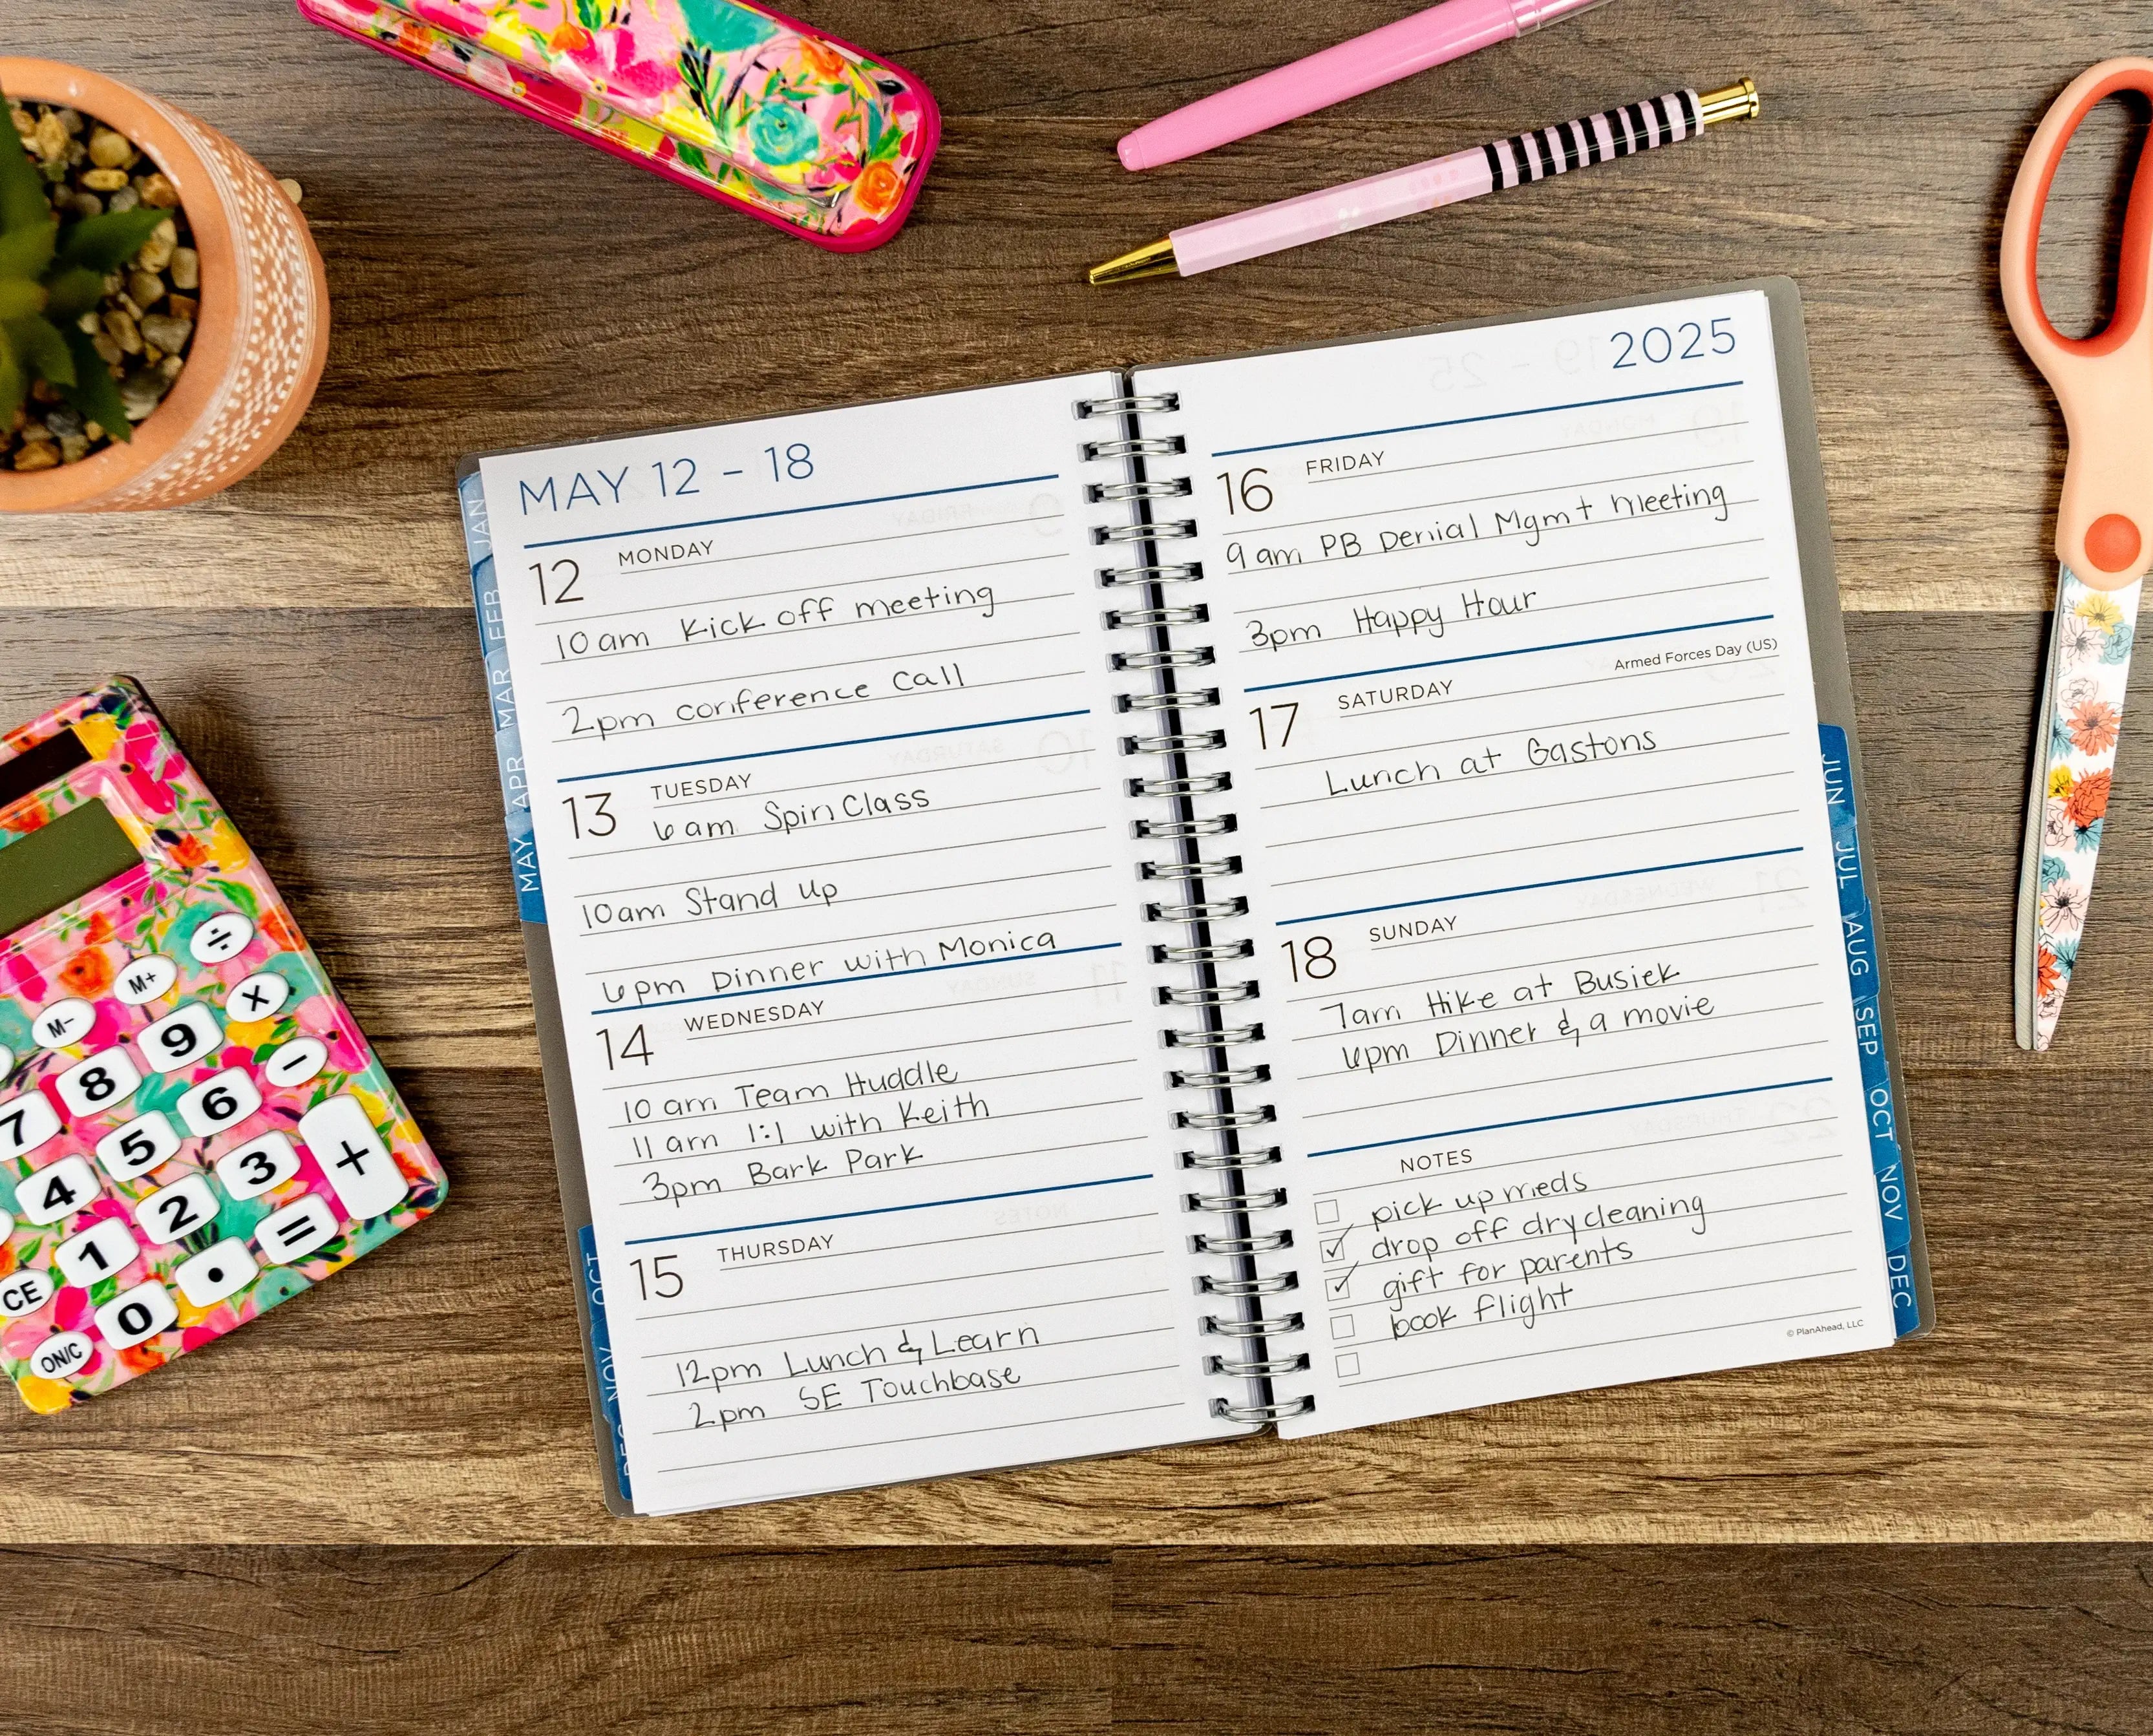 MAY 12 - 18
12 MONDAY
10 am Kick off meeting
2pm conference call
13 TUESDAY
6 am Spin Class
10am Stand up
6pm Dinner with Monica
14 WEDNESDAY
10 am Team Huddle
11 am 1:1 with Keith
3pm Bark Park
15 THURSDAY
12pm Lunch & Learn
2pm SE Touchbase
2025
16 FRIDAY
9 am PB Denial Mgmt meeting
3pm Happy Hour
Armed Forces Day (US)
17 SATURDAY
Lunch at Gastons
18 SUNDAY
7am Hike at Busiek
6pm Dinner & a movie
NOTES
pick up meds
drop off dry cleaning
gift for parents
book flight
© PlanAhead, LLC
JAN
FEB
MAR
APR
MAY
OCT
NOV
DEC
JUN
JUL
AUG
SEP
OCT
NOV
DEC
÷
M+
X
M-
9
-
8
6
7
5
+
3
4
2
=
1
.
CE
0
ON/C